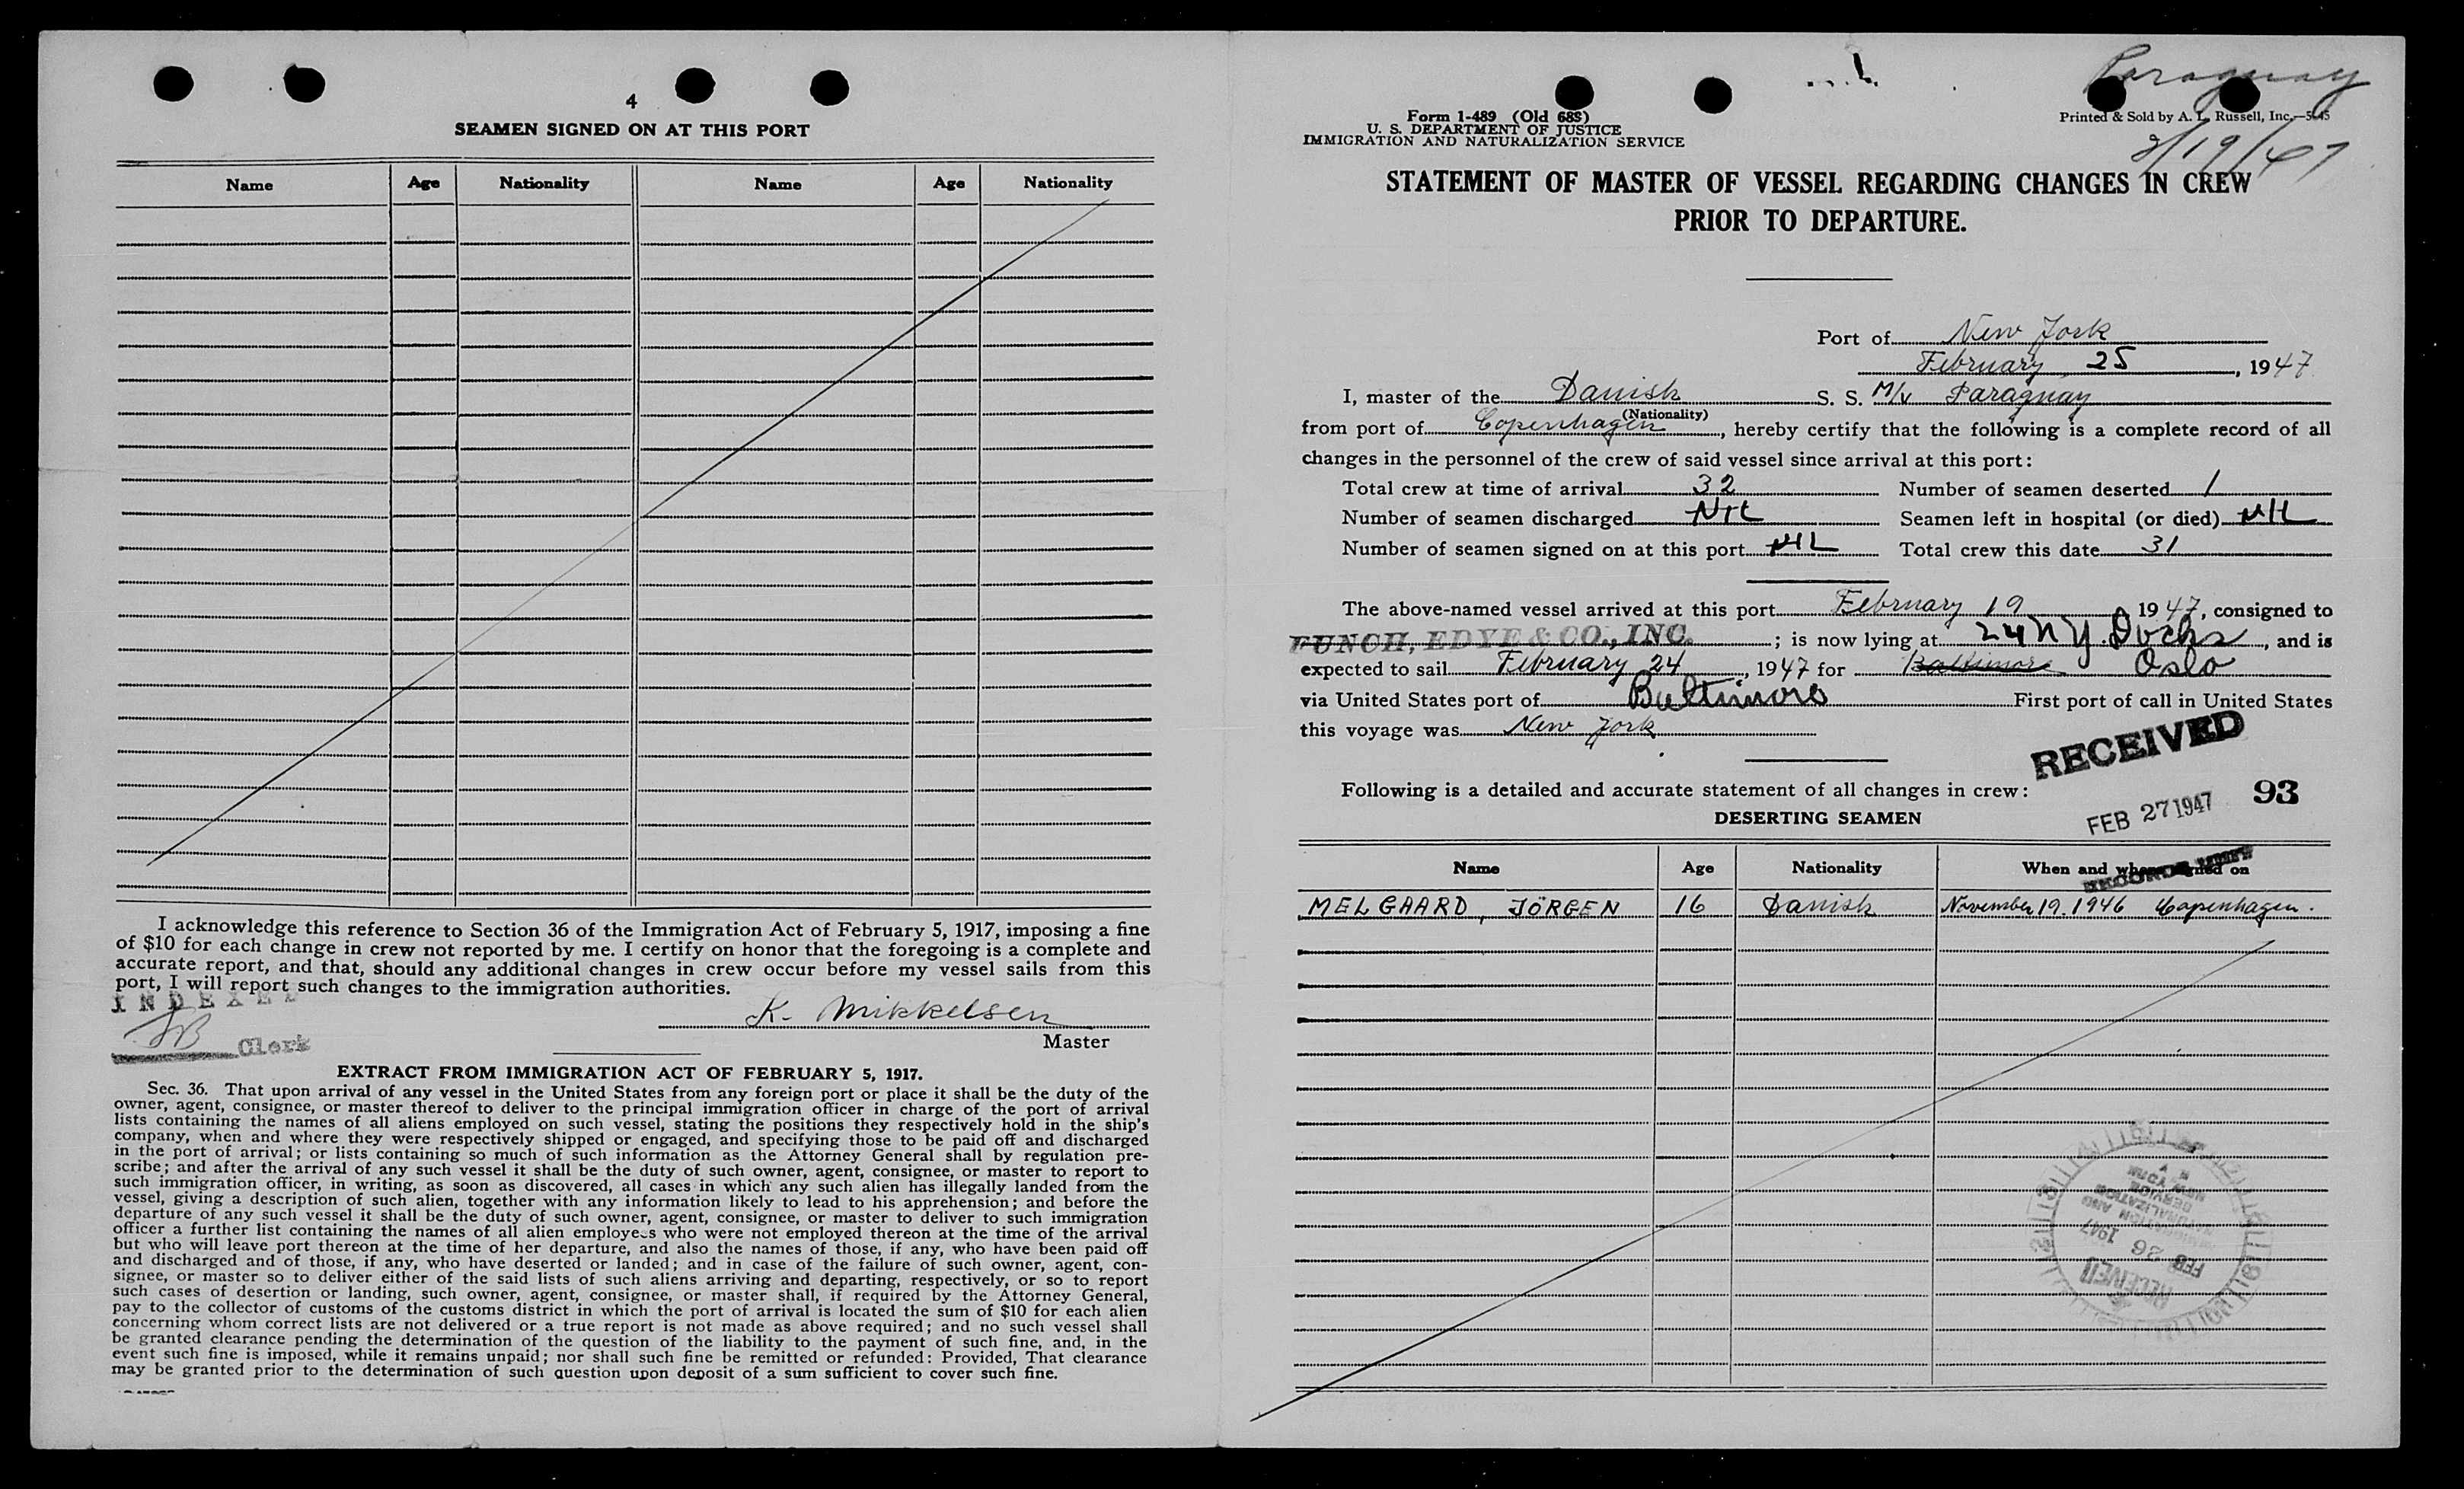 4
SEAMEN SIGNED ON AT THIS PORT
Name Age Nationality Name Age Nationality
I acknowledge this reference to Section 36 of the Immigration Act of February 5, 1917, imposing a fine
of $10 for each change in crew not reported by me. I certify on honor that the foregoing is a complete and
accurate report, and that, should any additional changes in crew occur before my vessel sails from this
port, I will report such changes to the immigration authorities.
INDEXED
K. Mikkelsen
Clerk
Master
EXTRACT FROM IMMIGRATION ACT OF FEBRUARY 5, 1917.
Sec. 36. That upon arrival of any vessel in the United States from any foreign port or place it shall be the duty of the
owner, agent, consignee, or master thereof to deliver to the principal immigration officer in charge of the port of arrival
lists containing the names of all aliens employed on such vessel, stating the positions they respectively hold in the ship's
company, when and where they were respectively shipped or engaged, and specifying those to be paid off and discharged
in the port of arrival; or lists containing so much of such information as the Attorney General shall by regulation pre-
scribe; and after the arrival of any such vessel it shall be the duty of such owner, agent, consignee, or master to report to
such immigration officer, in writing, as soon as discovered, all cases in which any such alien has illegally landed from the
vessel, giving a description of such alien, together with any information likely to lead to his apprehension; and before the
departure of any such vessel it shall be the duty of such owner, agent, consignee, or master to deliver to such immigration
officer a further list containing the names of all alien employees who were not employed thereon at the time of the arrival
but who will leave port thereon at the time of her departure, and also the names of those, if any, who have been paid off
and discharged and of those, if any, who have deserted or landed; and in case of the failure of such owner, agent, con-
signee, or master so to deliver either of the said lists of such aliens arriving and departing, respectively, or so to report
such cases of desertion or landing, such owner, agent, consignee, or master shall, if required by the Attorney General,
pay to the collector of customs of the customs district in which the port of arrival is located the sum of $10 for each alien
concerning whom correct lists are not delivered or a true report is not made as above required; and no such vessel shall
be granted clearance pending the determination of the question of the liability to the payment of such fine, and, in the
event such fine is imposed, while it remains unpaid; nor shall such fine be remitted or refunded: Provided, That clearance
may be granted prior to the determination of such question upon deposit of a sum sufficient to cover such fine.
Paraguay
Form 1-489 (Old 689)
U. S. DEPARTMENT OF JUSTICE
IMMIGRATION AND NATURALIZATION SERVICE
Printed & Sold by A. L. Russell, Inc.—5-45
2/19/47
STATEMENT OF MASTER OF VESSEL REGARDING CHANGES IN CREW
PRIOR TO DEPARTURE.
Port of New York
February 25, 1947
I, master of the Danish S. S. M/v Paraguay
(Nationality)
from port of Copenhagen, hereby certify that the following is a complete record of all
changes in the personnel of the crew of said vessel since arrival at this port:
Total crew at time of arrival 32 Number of seamen deserted 1
Number of seamen discharged NIL Seamen left in hospital (or died) NIL
Number of seamen signed on at this port NIL Total crew this date 31
The above-named vessel arrived at this port February 19 1947, consigned to
FUNCH, EDYE & CO., INC. ; is now lying at 24 NY Docks, and is
expected to sail February 24, 1947 for Baltimore Oslo
via United States port of Baltimore First port of call in United States
this voyage was New York
RECEIVED
Following is a detailed and accurate statement of all changes in crew:
93
FEB 27 1947
DESERTING SEAMEN
Name Age Nationality When and where signed on
MELGAARD, JÖRGEN 16 Danish November 19. 1946 Copenhagen.
RECEIVED
FEB 26 1947
IMMIGRATION AND
NATURALIZATION
SERVICE
NEW YORK
N Y